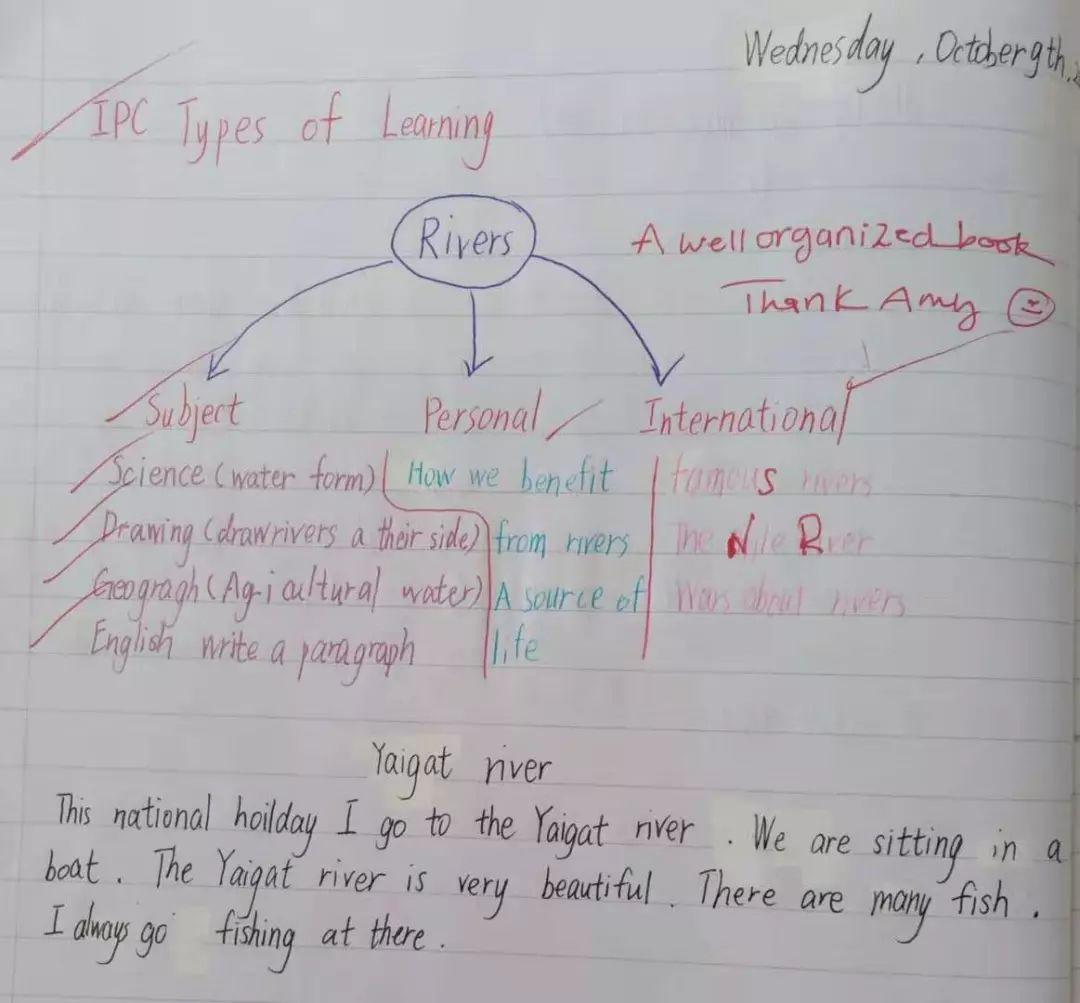 Wednesday, October 9th,
IPC Types of Learning
Rivers
A well organized book
Thank Amy
Subject Personal International
Science (water form) How we benefit famous rivers
Drawing (draw rivers a their side) from rivers The Nile River
Geogragh (Agricultural water) A source of Wars about rivers
English write a paragraph life
Yaigat river
This national hoilday I go to the Yaigat river. We are sitting in a
boat. The Yaigat river is very beautiful. There are many fish.
I always go fishing at there.